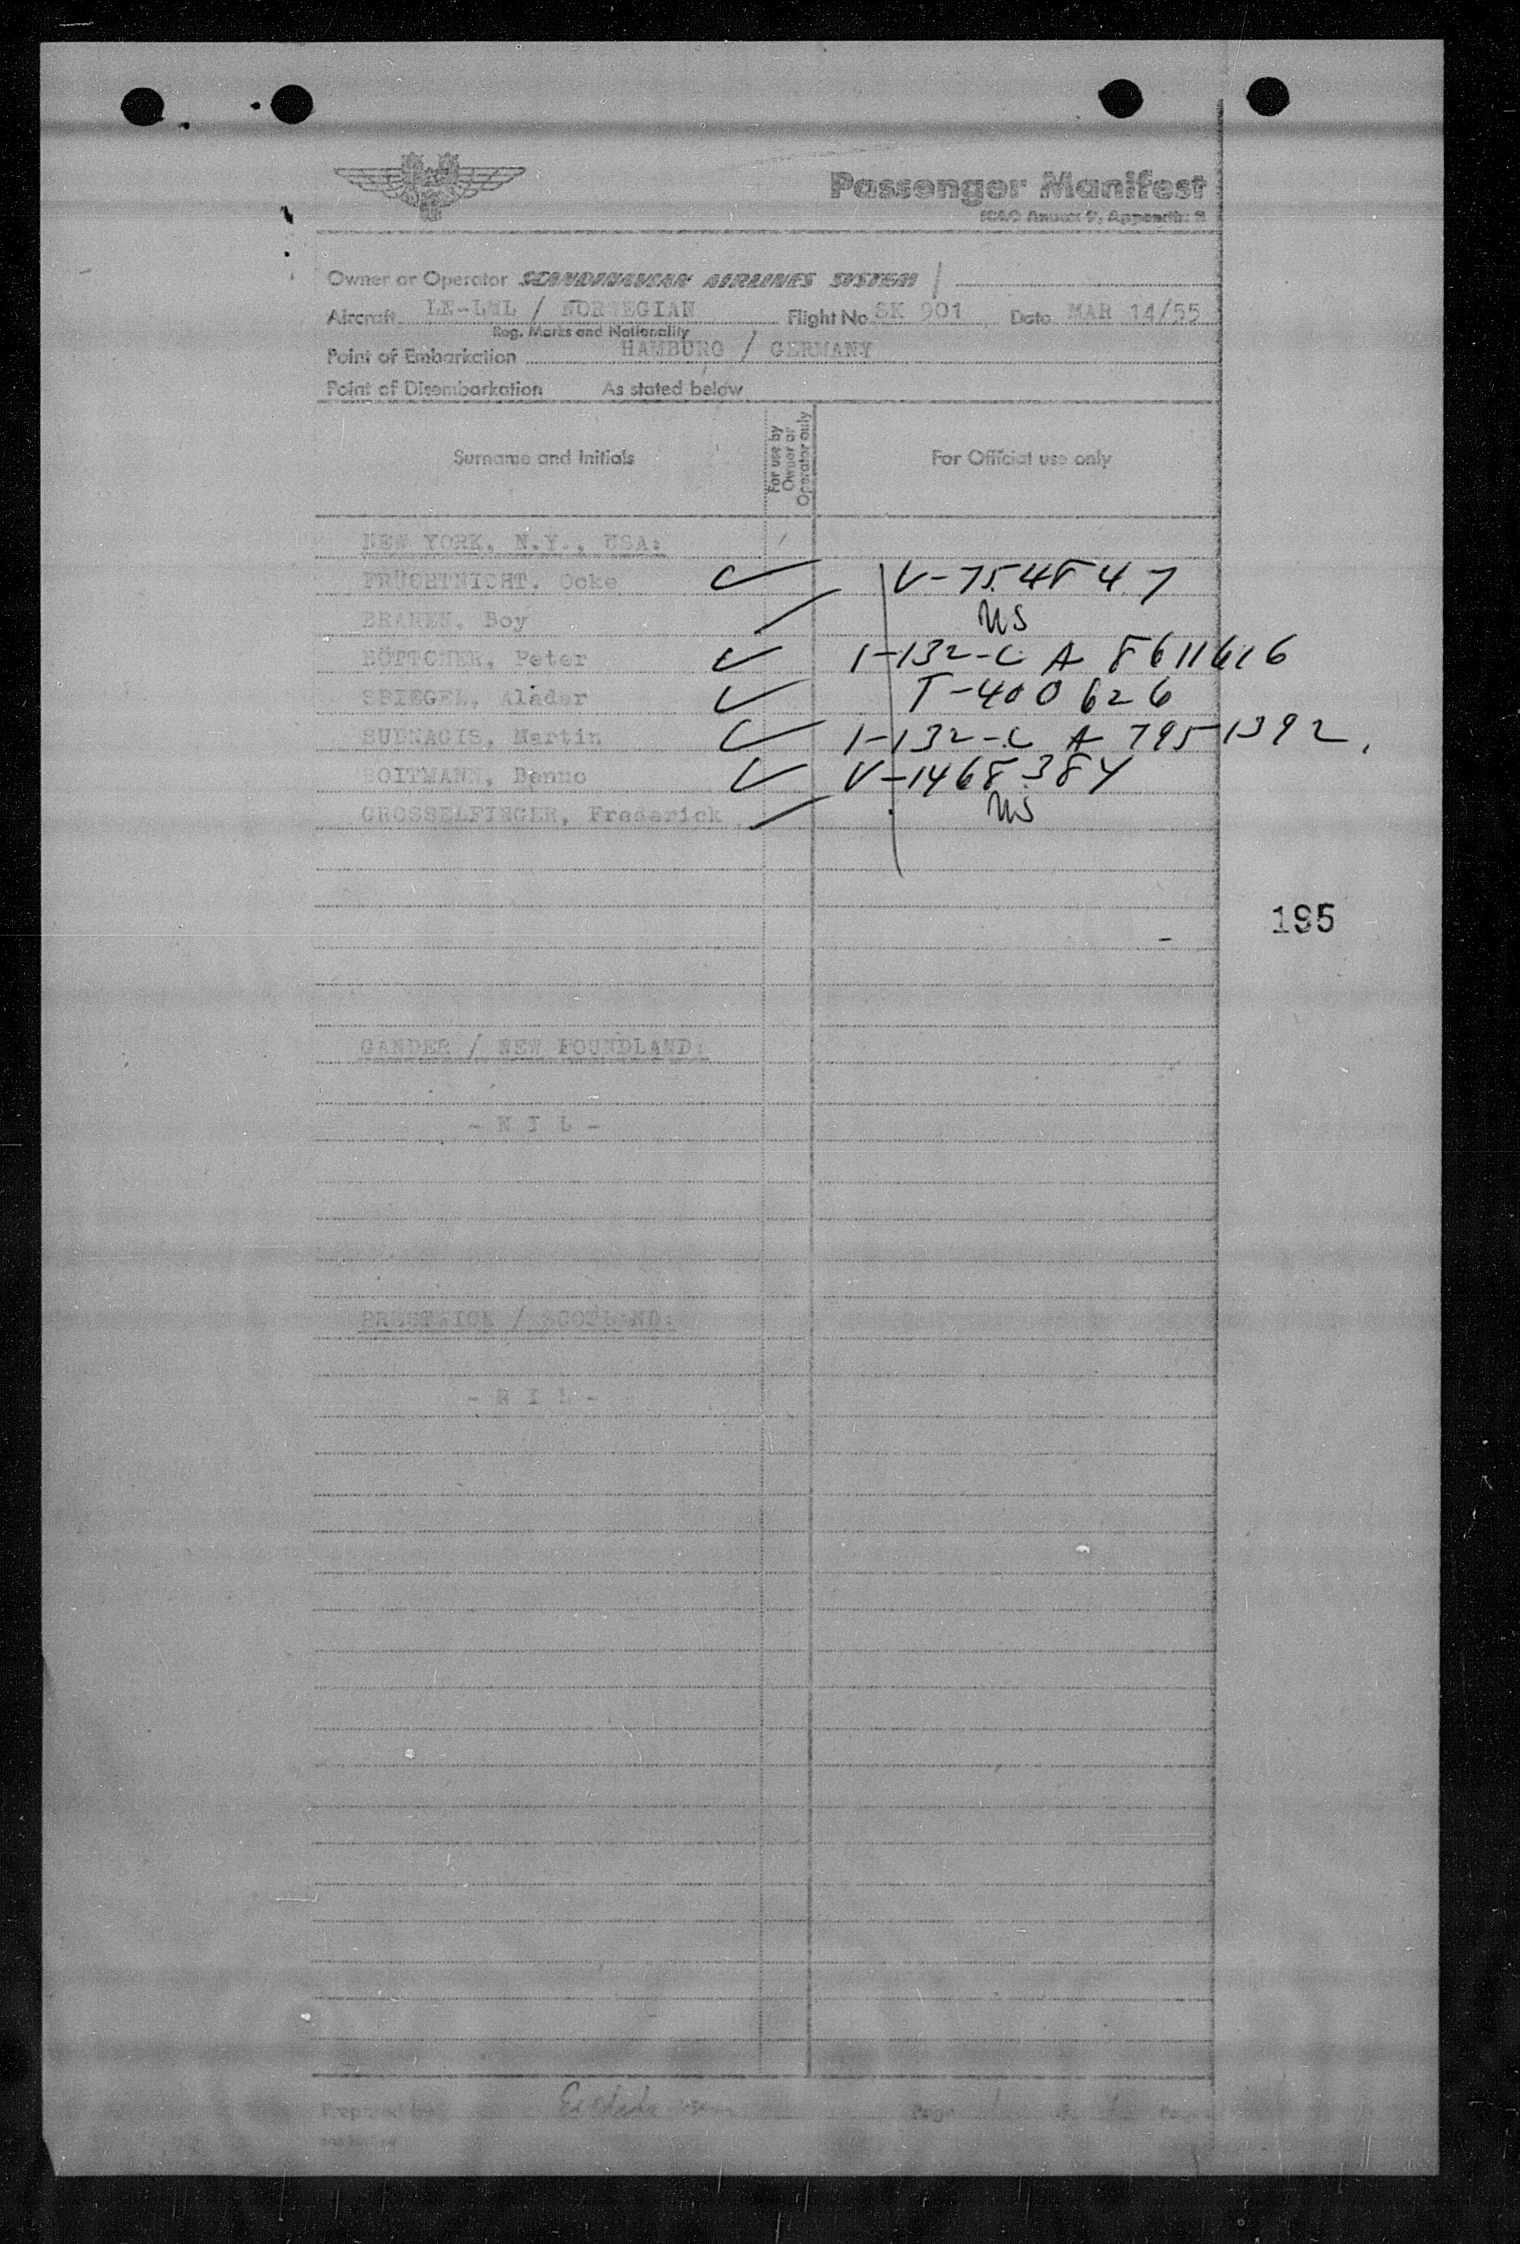 Passenger Manifest
ICAO Annex 9, Appendix 2
Owner or Operator SCANDINAVIAN AIRLINES SYSTEM /
Aircraft LN-LML / NORWEGIAN Flight No. SK 901 Date MAR 14/55
Reg. Marks and Nationality
Point of Embarkation HAMBURG / GERMANY
Point of Disembarkation As stated below
Surname and Initials For use by Owner or Operator only For Official use only
NEW YORK, N.Y., USA:
FRÜCHTNICHT, Ocke V-754847
BRAREN, Boy US
BÖTTCHER, Peter I-132-C A 8611616
SPIEGEL, Alader T-400626
BUDNAGIS, Martin I-132-C A 7951392
BOITMANN, Benno V-1468384
GROSSELFINGER, Frederick US
195
GANDER / NEW FOUNDLAND:
- N I L -
PRESTWICK / SCOTLAND:
- N I L -
Prepared by Page